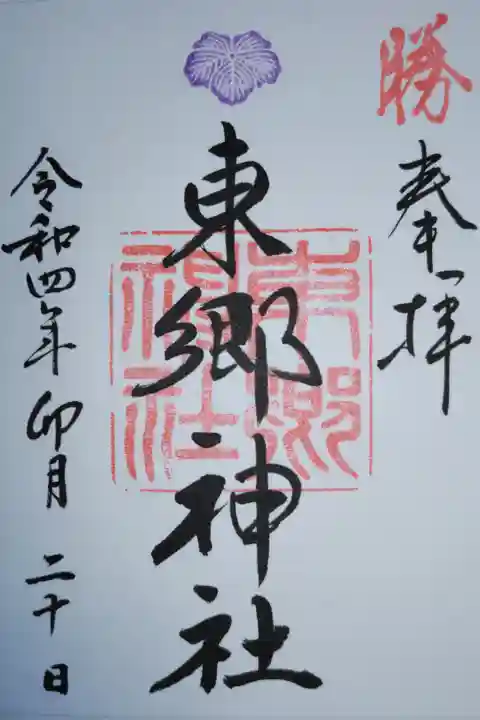 勝
奉拝
東郷神社
東郷神社
令和四年 卯月 二十日